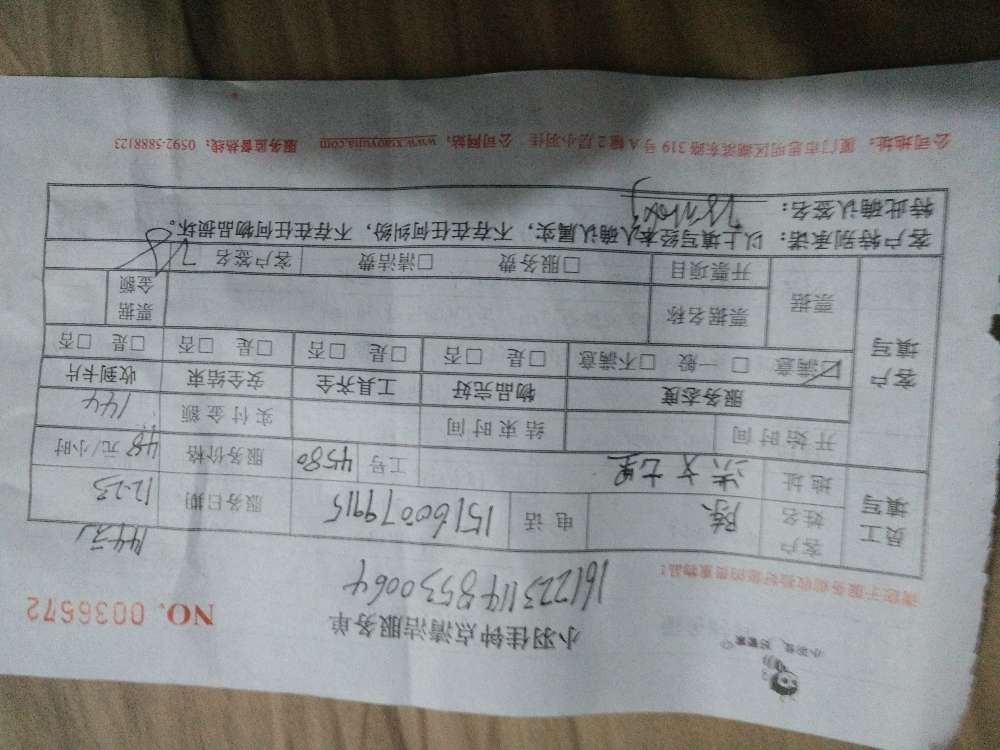 小羽佳，好管家
小羽佳钟点清洁服务单
NO. 0036572
1612231148530064
请您于服务前收拾好您的贵重物品！
144元
员工填写
客户姓名 陈 电话 15160079915 服务日期 12-23
地址 工号 4580 服务价格 48 元/小时
开始时间 结束时间 实付金额 144
客户填写
服务态度 物品完好 工具齐全 安全结束 收到卡片
☑满意 □一般 □不满意 □是 □否 □是 □否 □是 □否 □是 □否
票据 票据名称 票据金额
开票项目 □服务费 □清洁费 客户签名
客户特别承诺：以上填写经本人确认属实，不存在任何纠纷，不存在任何物品损坏。
特此确认签名：
公司地址：厦门市思明区湖滨东路 319 号 A 幢 2 层小羽佳 公司网站：www.xiaoyujia.com 服务监督热线：0592-5888123